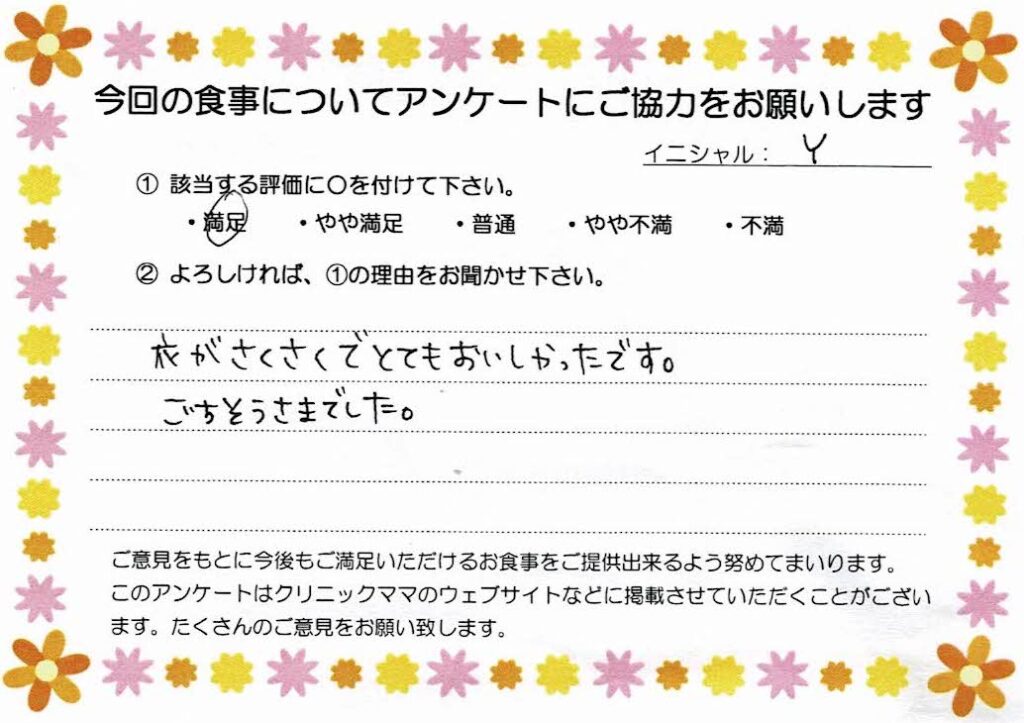 今回の食事についてアンケートにご協力をお願いします
イニシャル： Y
① 該当する評価に〇を付けて下さい。
・満足 ・やや満足 ・普通 ・やや不満 ・不満
② よろしければ、①の理由をお聞かせ下さい。
衣がさくさくでとてもおいしかったです。
ごちそうさまでした。
ご意見をもとに今後もご満足いただけるお食事をご提供出来るよう努めてまいります。
このアンケートはクリニックママのウェブサイトなどに掲載させていただくことがござい
ます。たくさんのご意見をお願い致します。